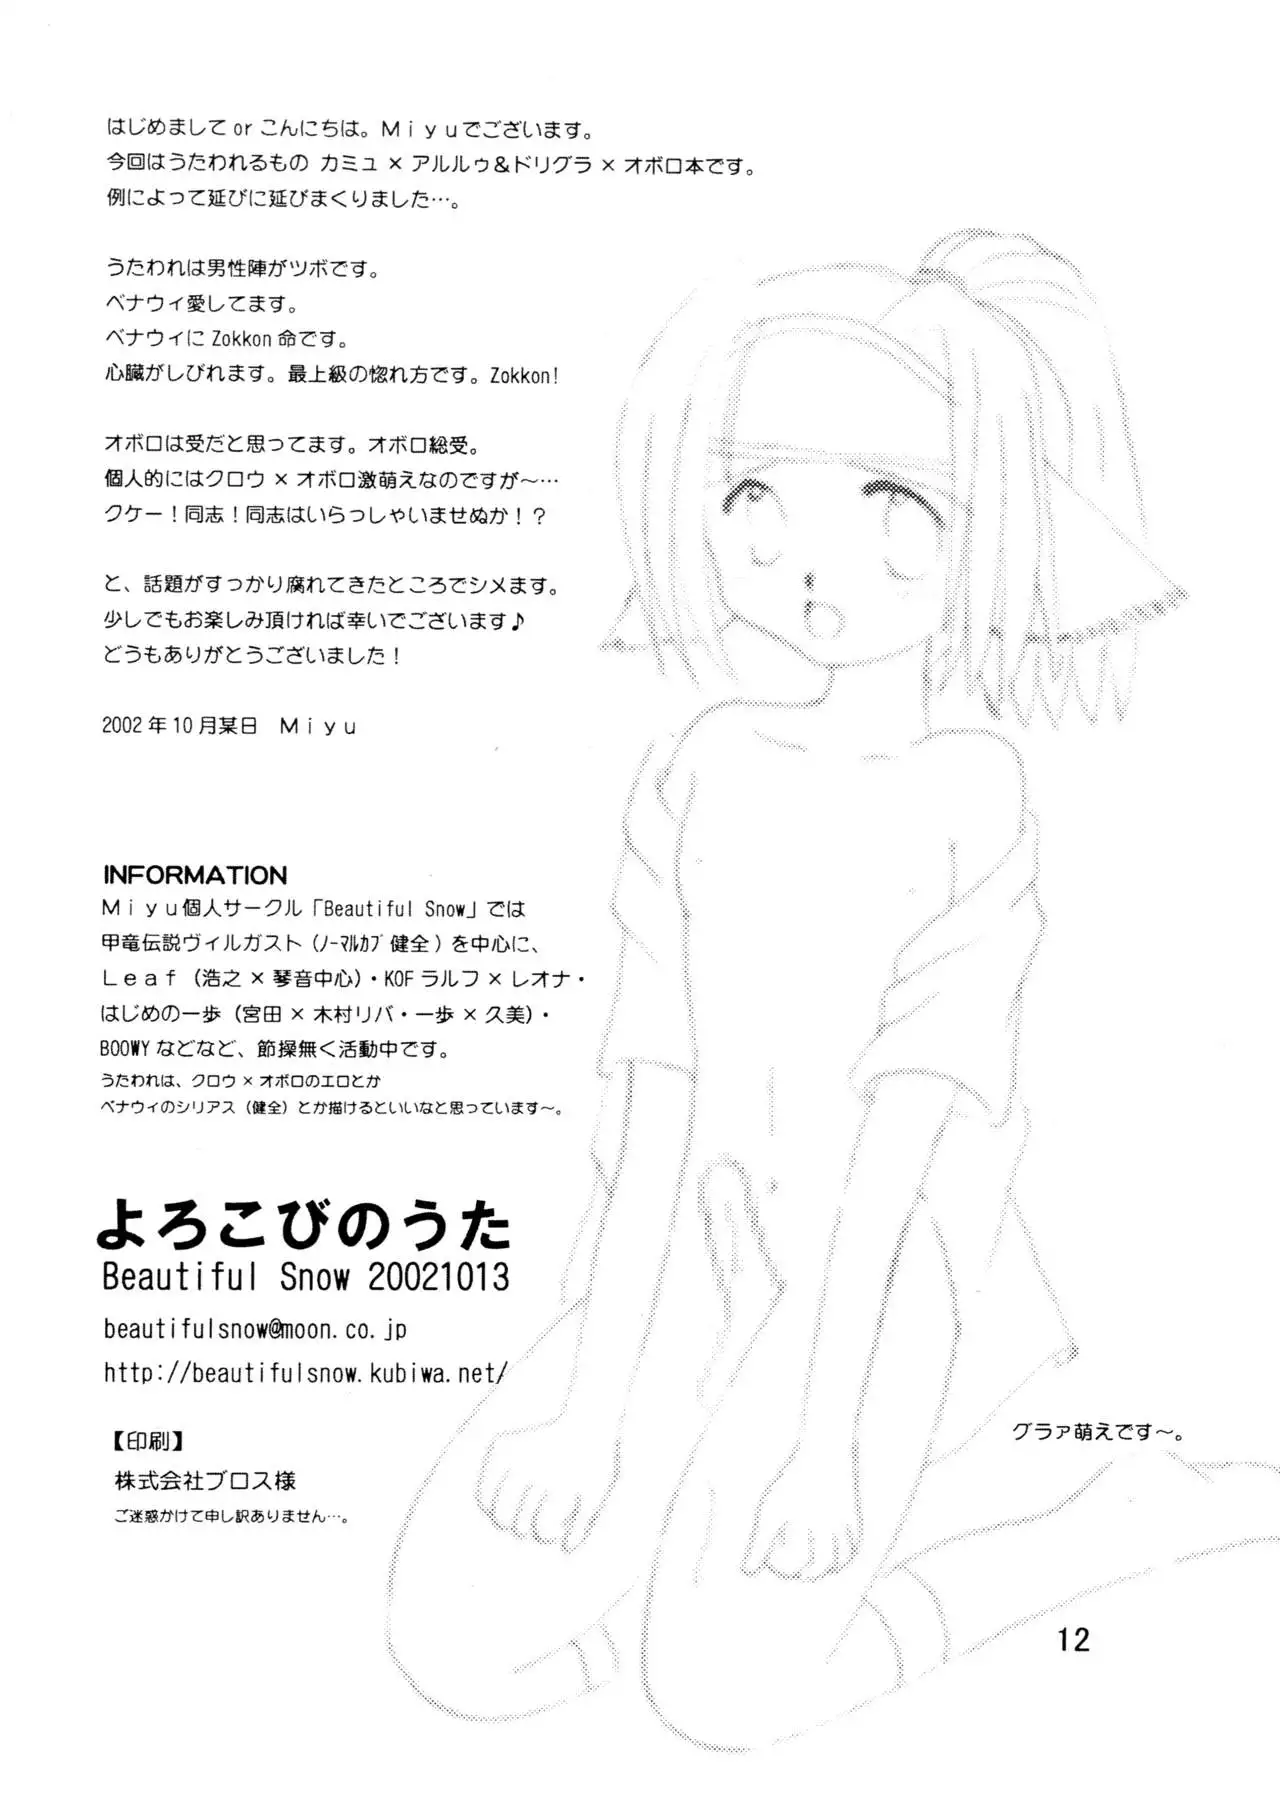 はじめまして or こんにちは。Ｍｉｙｕでございます。
今回はうたわれるもの カミュ×アルルゥ＆ドリグラ×オボロ本です。
例によって延びに延びまくりました…。
うたわれは男性陣がツボです。
ベナウィ愛してます。
ベナウィに Zokkon 命です。
心臓がしびれます。最上級の惚れ方です。Zokkon!
オボロは受だと思ってます。オボロ総受。
個人的にはクロウ×オボロ激萌えなのですが～…
クケー！同志！同志はいらっしゃいませぬか！？
と、話題がすっかり腐れてきたところでシメます。
少しでもお楽しみ頂ければ幸いでございます♪
どうもありがとうございました！
2002年10月某日　Ｍｉｙｕ
INFORMATION
Ｍｉｙｕ個人サークル「Beautiful Snow」では
甲竜伝説ヴィルガスト（ﾉｰﾏﾙｶﾌﾟ健全）を中心に、
Ｌｅａｆ（浩之×琴音中心）・KOF ラルフ×レオナ・
はじめの一歩（宮田×木村リバ・一歩×久美）・
BOOWY などなど、節操無く活動中です。
うたわれは、クロウ×オボロのエロとか
ベナウィのシリアス（健全）とか描けるといいなと思っています～。
よろこびのうた
Beautiful Snow 20021013
beautifulsnow@moon.co.jp
http://beautifulsnow.kubiwa.net/
【印刷】
株式会社ブロス様
ご迷惑かけて申し訳ありません…。
グラァ萌えです～。
12